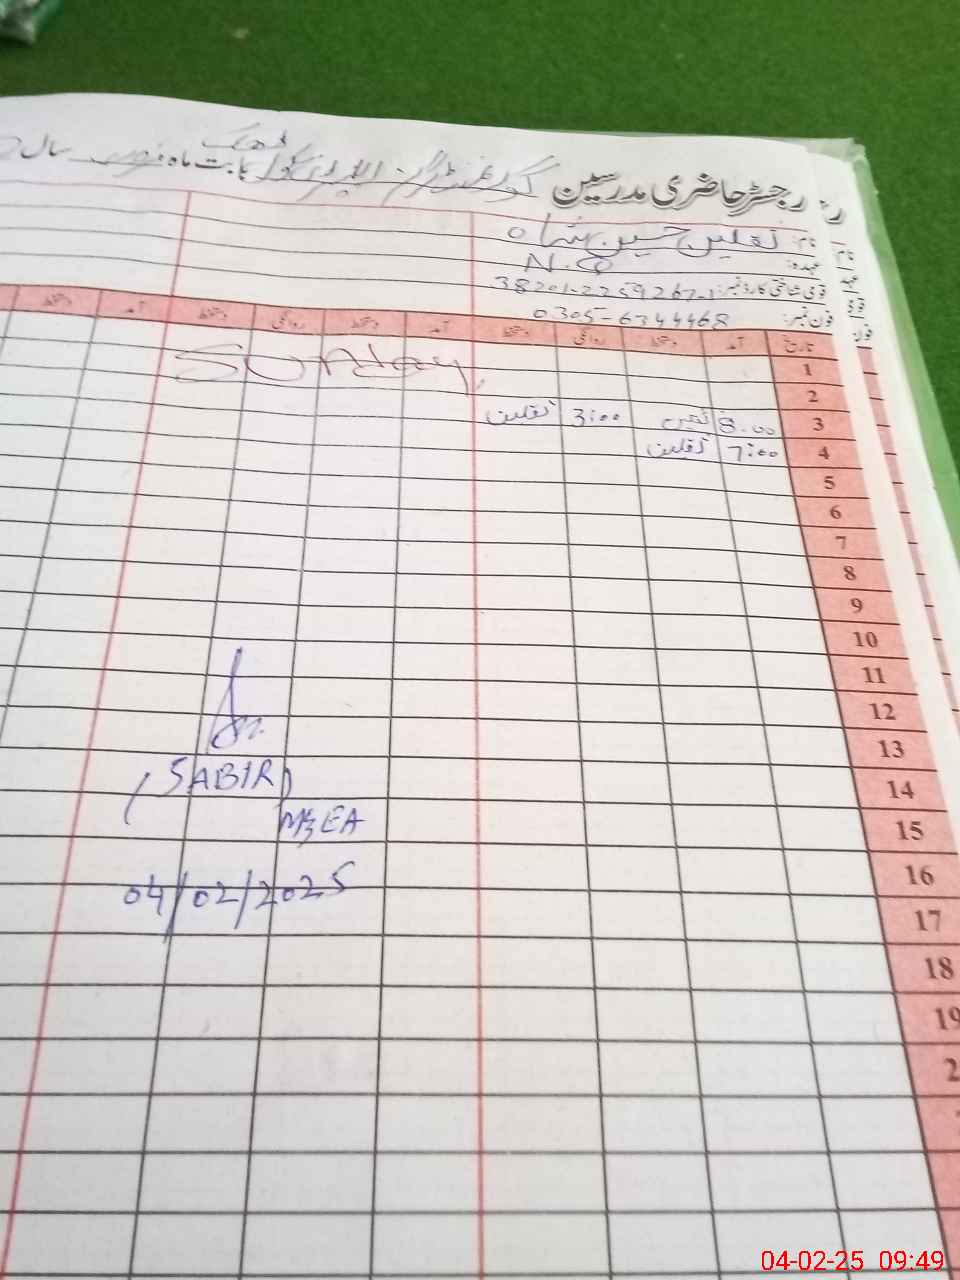 رجسٹر حاضری مدرسین گورنمنٹ گرلز ایلیمنٹری سکول ٹھٹھہ بابت ماہ فروری سال
نام: ثقلین حسین شاہ
عہدہ: N.Q
قومی شناختی کارڈ نمبر: 38201-2259267-1
فون نمبر: 0305-6344468
تاریخ آمد دستخط روانگی دستخط آمد دستخط روانگی دستخط آمد دستخط
1
Sunday
2
3 8.00 ثقلین 3:00 ثقلین
4 7:00 ثقلین
5
6
7
8
9
10
11
12
13
14
15
16
17
18
19
(SABIR)
MEA
04/02/2025
04-02-25 09:49